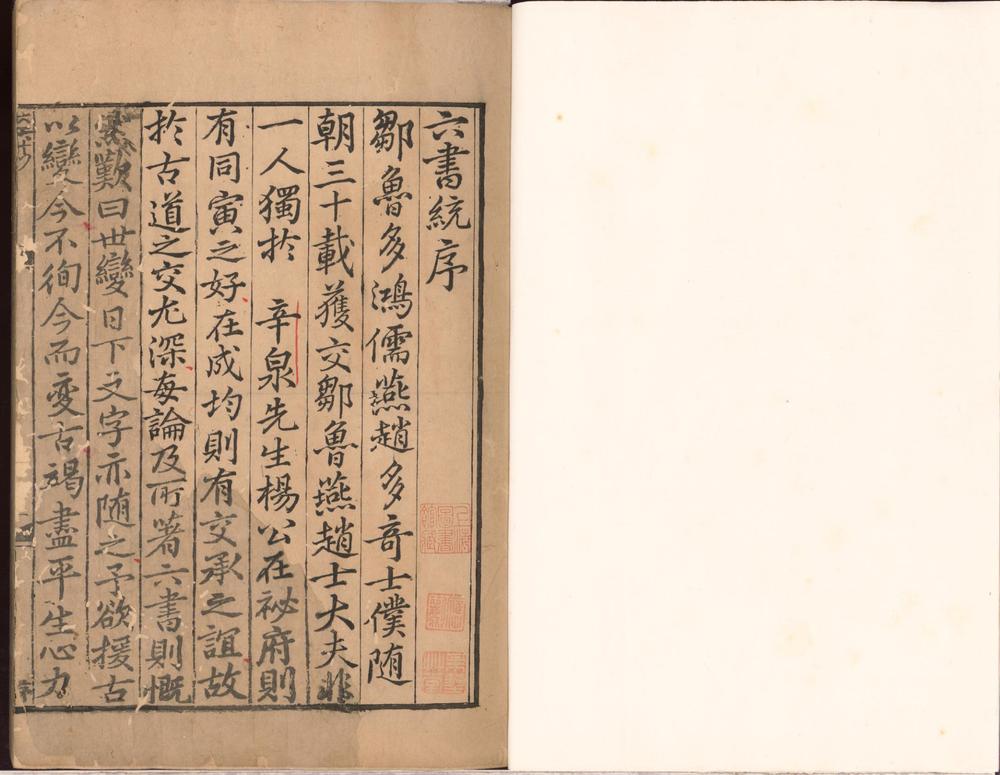 六書統序
鄒魯多鴻儒燕趙多奇士僕随
朝三十載獲交鄒魯燕趙士大夫非
一人獨扵　辛泉先生楊公在祕府則
有同寅之好在成均則有交承之誼故
扵古道之交尤深每論及所著六書則慨
然歎曰世變日下文字亦随之予欲援古
以變今不徇今而变古竭盡平生心力